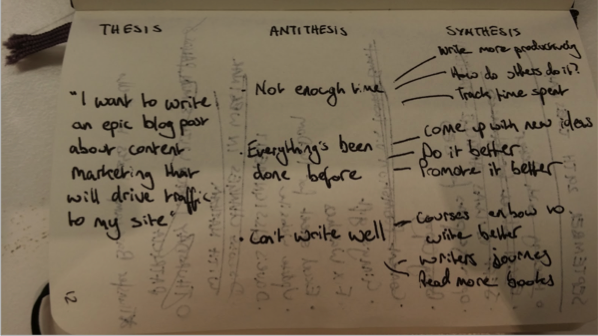 THESIS
ANTITHESIS
SYNTHESIS
"I want to write
an epic blog post
about content
marketing that
will drive traffic
to my site"
· Not enough time
Write more productively
How do others do it?
Track time spent
· Everything's been
done before
Come up with new ideas
Do it better
Promote it better
· Can't write well
Courses on how to
write better
Writers journey
Read more books
12